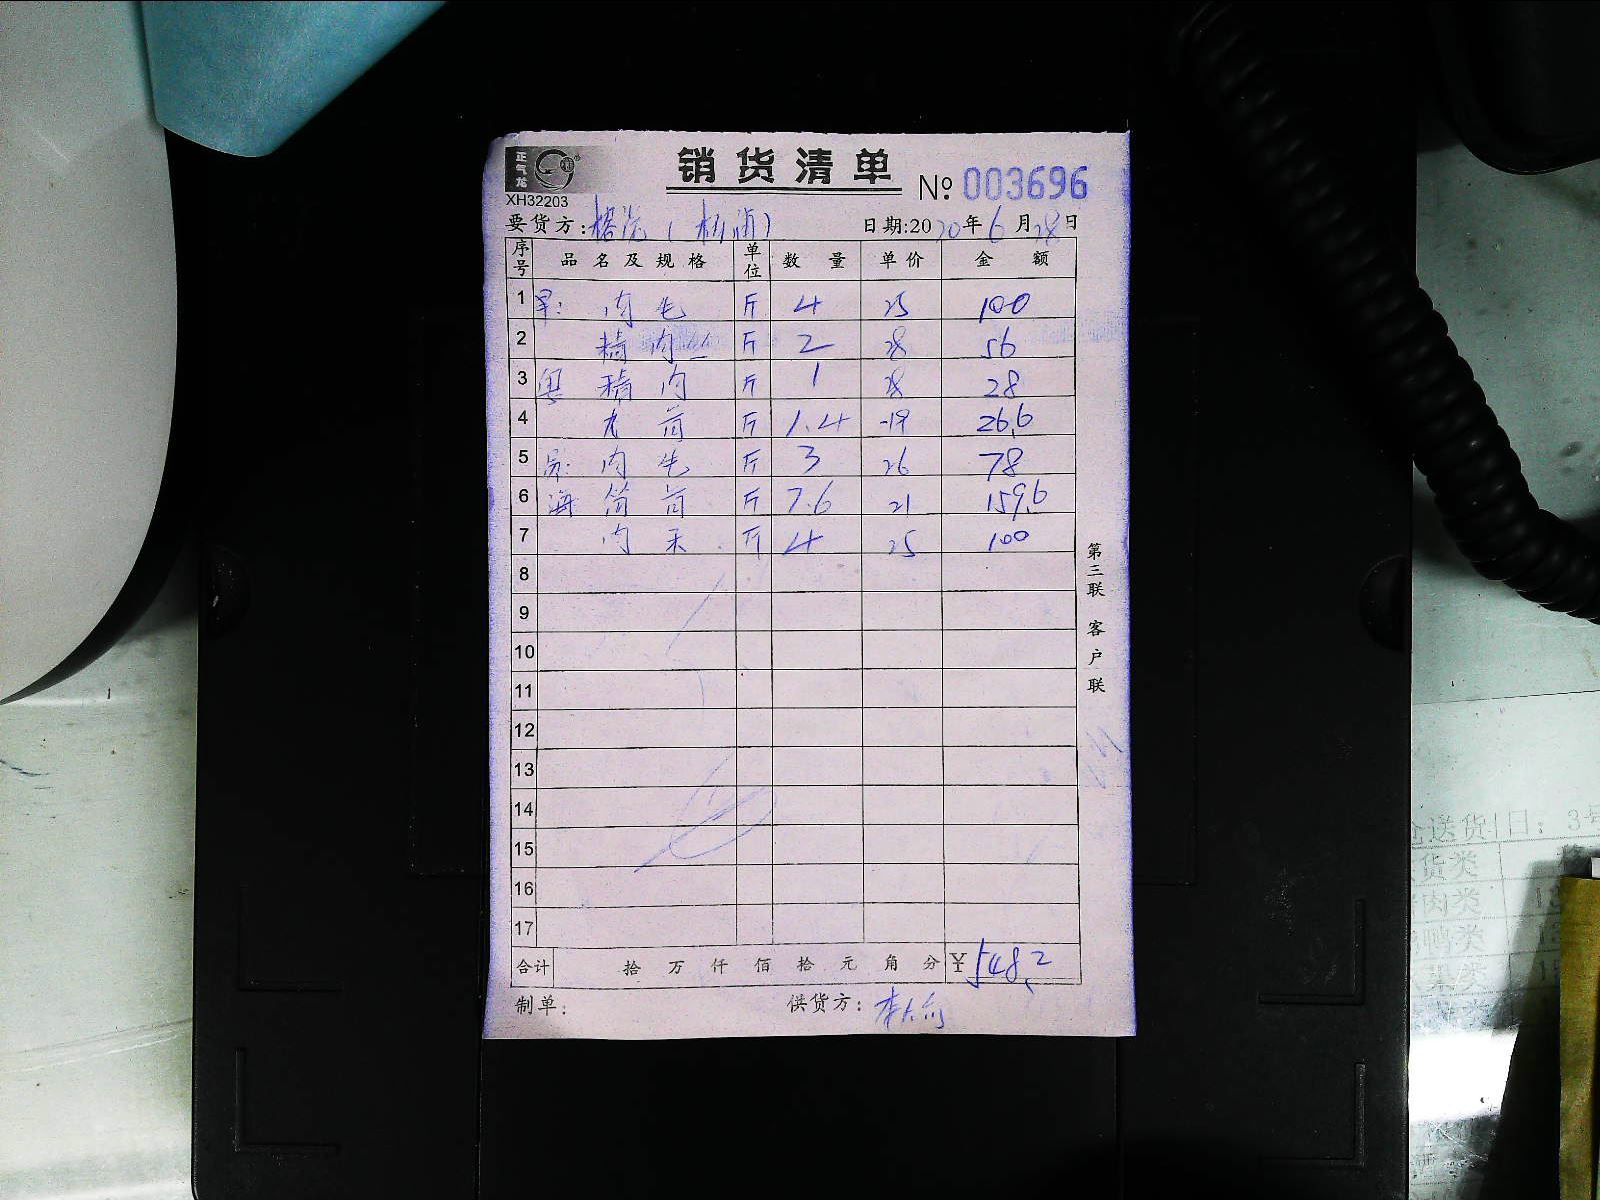 正气龙
销货清单
XH32203
№ 003696
要货方:
日期:2020年6月28日
序号 品名及规格 单位 数量 单价 金额
1 早: 肉 斤 4 25 100
2 精肉丝 斤 2 28 56
3 粤 精肉 斤 1 28 28
4 斤 1.4 19 26.6
5 肉 斤 3 26 78
6 海 斤 7.6 21 159.6
7 肉末 斤 4 25 100
8
9
10
11
12
13
14
15
16
17
合计 拾万仟佰拾元角分 ¥548.2
制单: 供货方:
第三联 客户联
送货日: 3
货类
肉类 13
鸭类
类